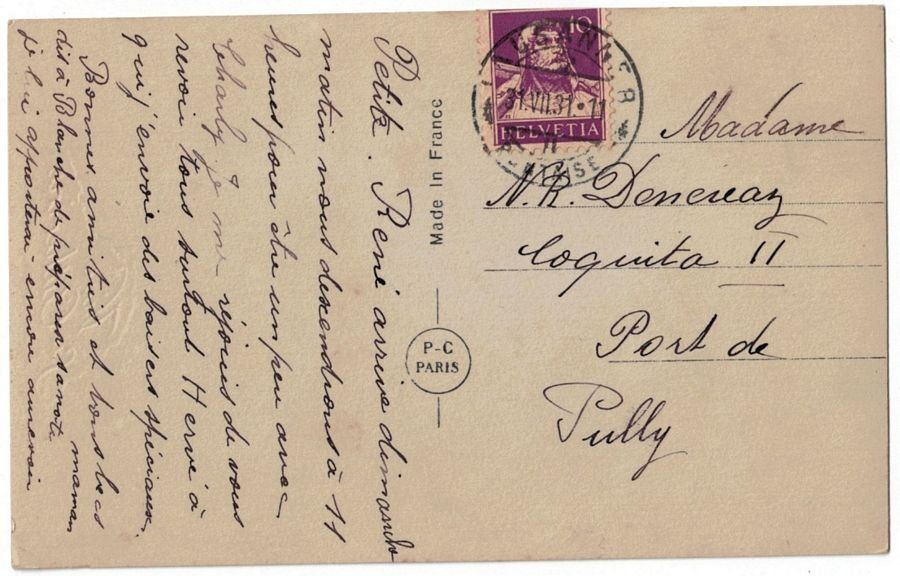 Petite. René arrive dimanche
matin nous descendrons à 11
heures pour être un peu avec
Charly je me réjouis de vous
revoir tous surtout Hervé à
qui j'envoie des baisers spéciaux.
Bonnes amitiés et bons becs
maman
dis à Blanche de préparer sa note
je lui apporterai
Made In France
P-C
PARIS
LAUSANNE
31.VII.31.11
10
HELVETIA
Madame
N.R. Denéréaz
Coquita II
Port de
Pully